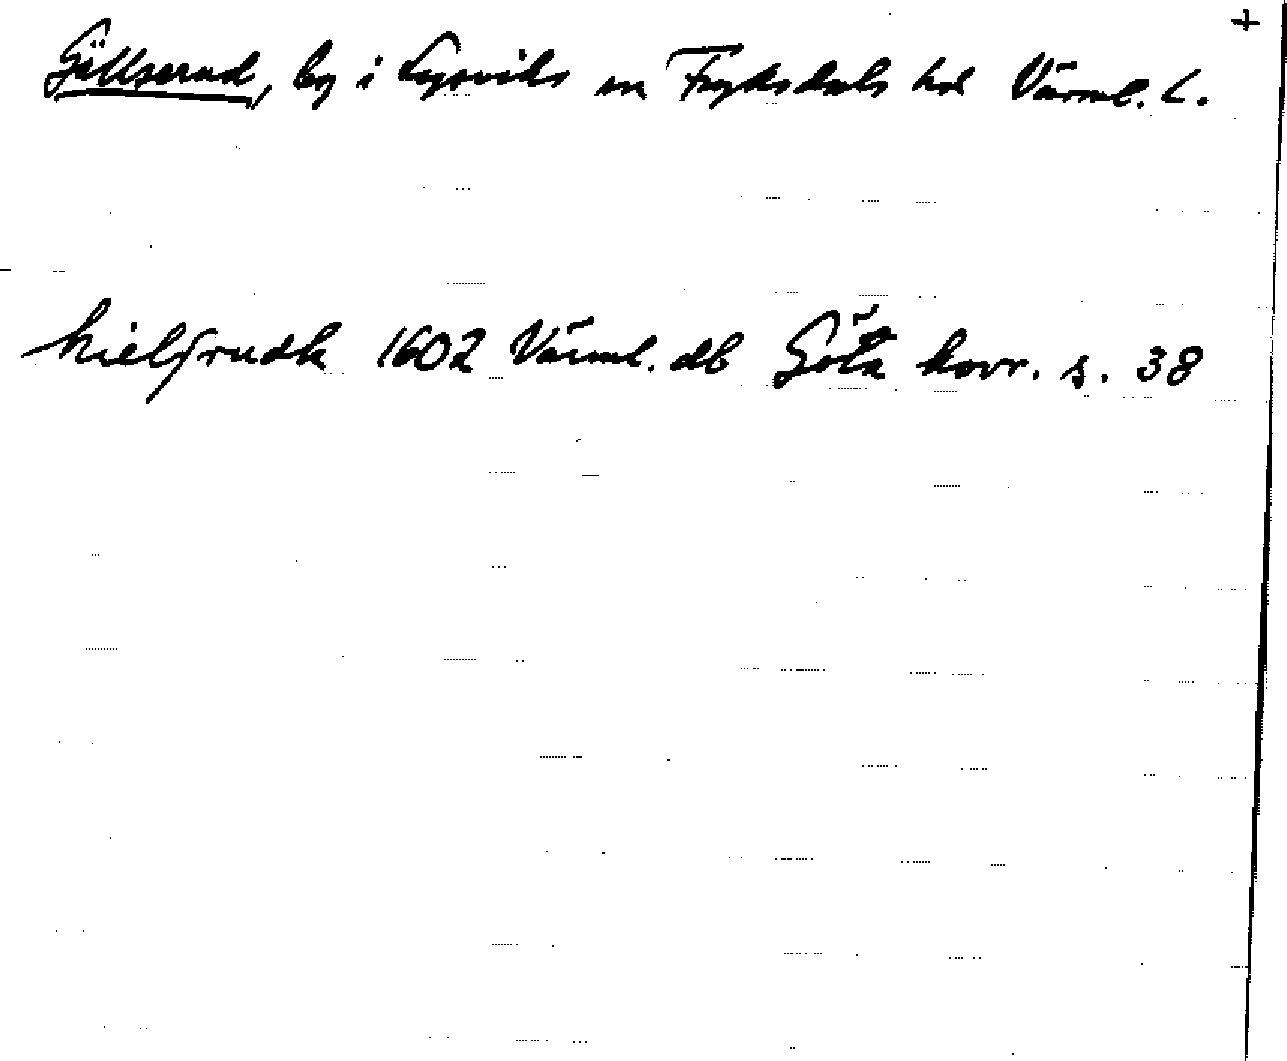 +
Gällserud, by i Lysviks sn Fryksdals hd Värml. l.
hielsrudh 1602 Värml. db Götz kovr. s. 38